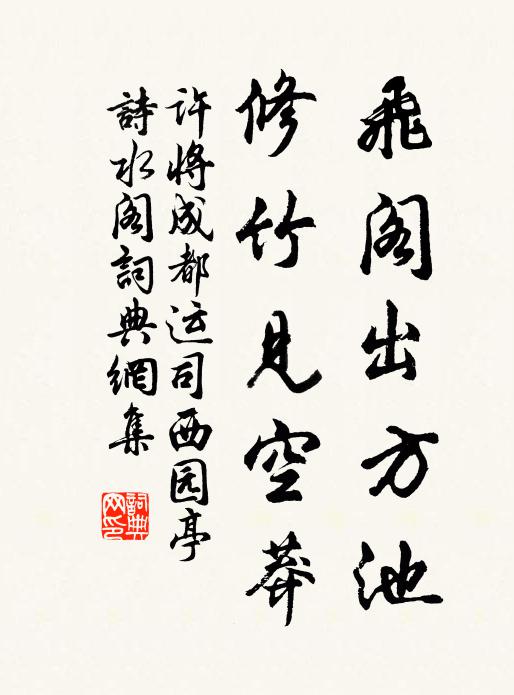 飛阁出方池
修竹見空莽
许將成都运司西园亭
詩水阁詞典網集
詞典网印